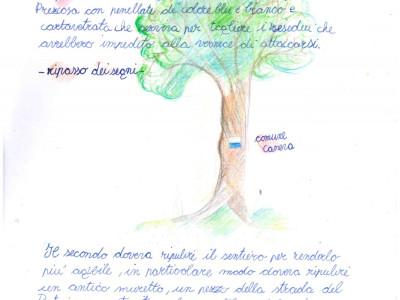 Preziosa con penellate di colore blu e bianco e
cartavetrata che serviva per togliere i residui che
avrebbero impedito alla vernice di attaccarsi.
-ripasso dei segni-
comune
Canera
Il secondo doveva ripulire il sentiero per renderlo
piu' agibile, in particolare modo doveva ripulire
un antico muretto, un pezzo della strada del